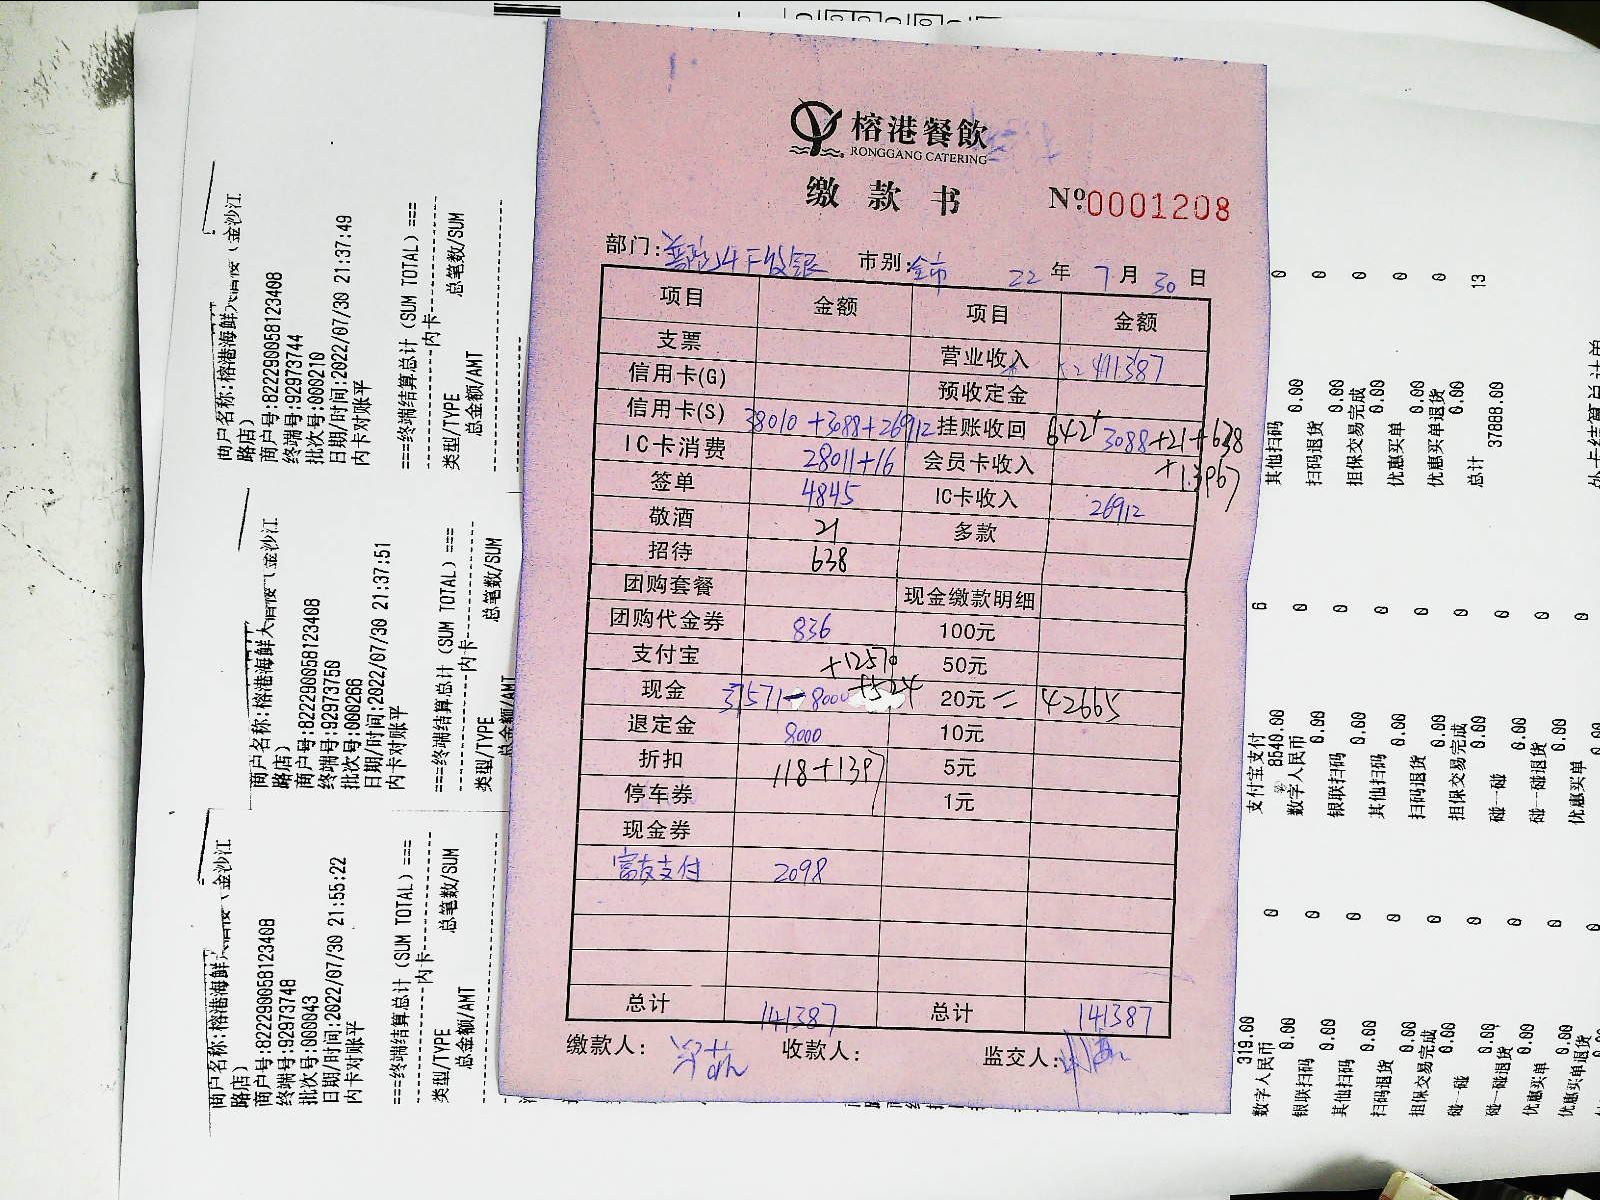 榕港餐飲
RONGGANG CATERING
缴款书 №:0001208
部门: 市别:全市 22年7月30日
项目 金额 项目 金额
支票 营业收入 411387
信用卡(G) 预收定金
信用卡(S) 38010+3088+26912 挂账收回 642+3088+21+638
IC卡消费 28011+16 会员卡收入 +13967
签单 4845 IC卡收入 26912
敬酒 21 多款
招待 638
团购套餐 现金缴款明细
团购代金券 836 100元
支付宝 +12570 50元
现金 31571-8000 20元 = 42665
退定金 8000 10元
折扣 118+1397 5元
停车券 1元
现金券
富友支付 2098
总计 141387 总计 141387
缴款人: 收款人: 监交人:
商户名称:榕港海鲜大酒楼(金沙江
路店)
商户号:822290058123408
终端号:92973744
批次号:000210
日期/时间:2022/07/30 21:37:49
内卡对账平
===终端结算总计(SUM TOTAL)===
内卡
类型/TYPE 总笔数/SUM
总金额/AMT
商户名称:榕港海鲜大酒楼(金沙江
路店)
商户号:822290058123408
终端号:92973750
批次号:000266
日期/时间:2022/07/30 21:37:51
内卡对账平
===终端结算总计(SUM TOTAL)===
内卡
类型/TYPE 总笔数/SUM
总金额/AMT
商户名称:榕港海鲜大酒楼(金沙江
路店)
商户号:822290058123408
终端号:92973748
批次号:000043
日期/时间:2022/07/30 21:55:22
内卡对账平
===终端结算总计(SUM TOTAL)===
内卡
类型/TYPE 总笔数/SUM
总金额/AMT
其他扫码 0
0.00
扫码退货 0
0.00
担保交易完成 0
0.00
优惠买单 0
0.00
优惠买单退货 0
0.00
总计 13
37888.00
外卡结算总计单
支付宝支付 6
8640.00
数字人民币 0
0.00
银联扫码 0
0.00
其他扫码 0
0.00
扫码退货 0
0.00
担保交易完成 0
0.00
碰一碰 0
0.00
碰一碰退货 0
0.00
优惠买单 0
0.00
319.00
数字人民币 0
0.00
银联扫码 0
0.00
其他扫码 0
0.00
扫码退货 0
0.00
担保交易完成 0
0.00
碰一碰 0
0.00
碰一碰退货 0
0.00
优惠买单 0
0.00
优惠买单退货 0
0.00